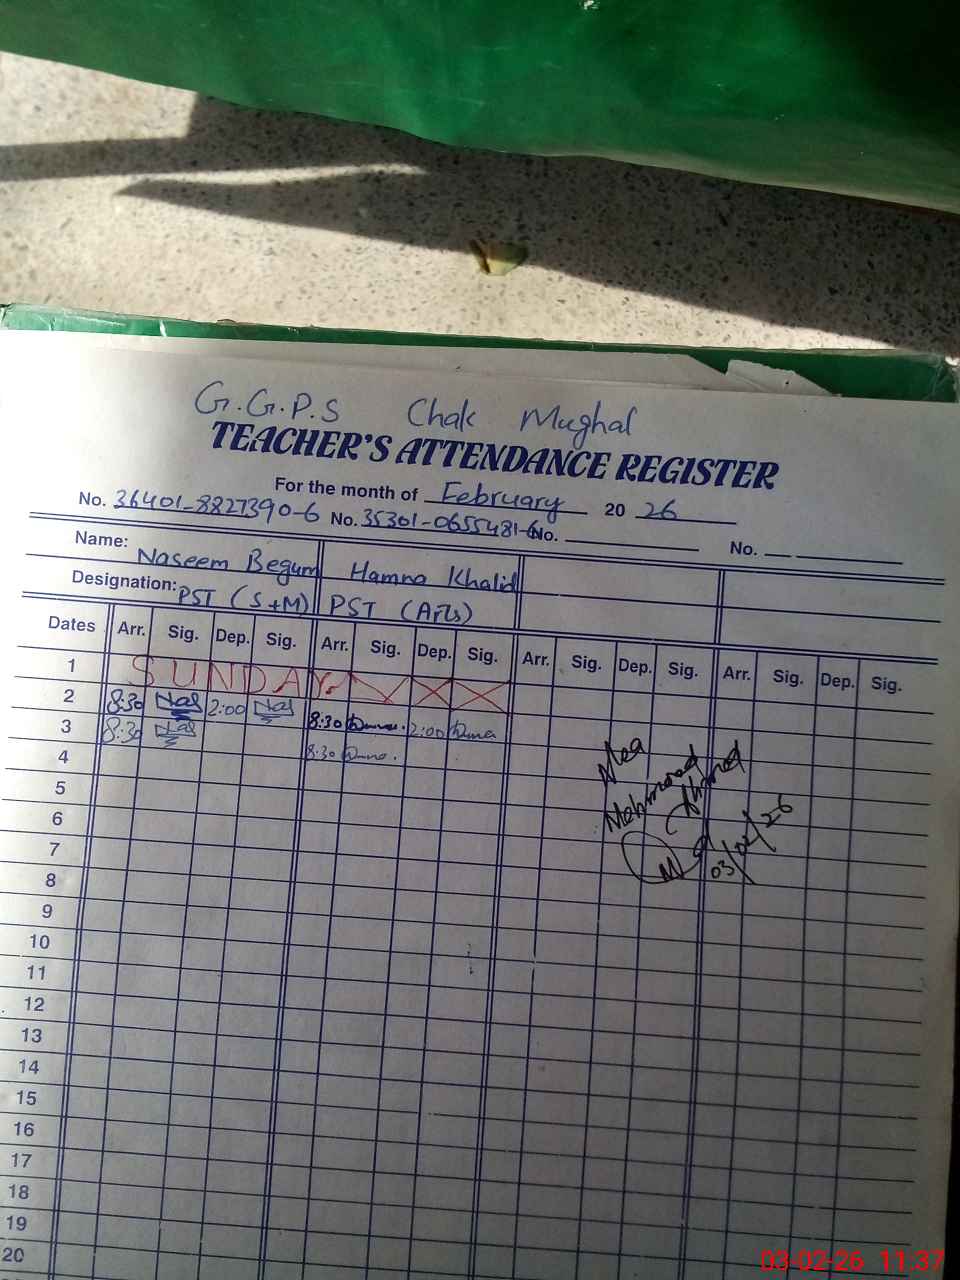 G.G.P.S Chak Mughal
TEACHER'S ATTENDANCE REGISTER
For the month of February 20 26
No. 36401-8827390-6 No. 35301-0655481-6 No. No.
Name: Naseem Begum Hamna Khalid
Designation: PST (S+M) PST (Arts)
Dates Arr. Sig. Dep. Sig. Arr. Sig. Dep. Sig. Arr. Sig. Dep. Sig. Arr. Sig. Dep. Sig.
1 SUNDAY
2 8:30 Nas 2:00 Nas 8:30 2:00
3 8:30 Nas 8:30
4
5
6
7
8
9
10
11
12
13
14
15
16
17
18
19
20
Mea
Mehmood Ahmad
03/02/26
03-02-26 11:37